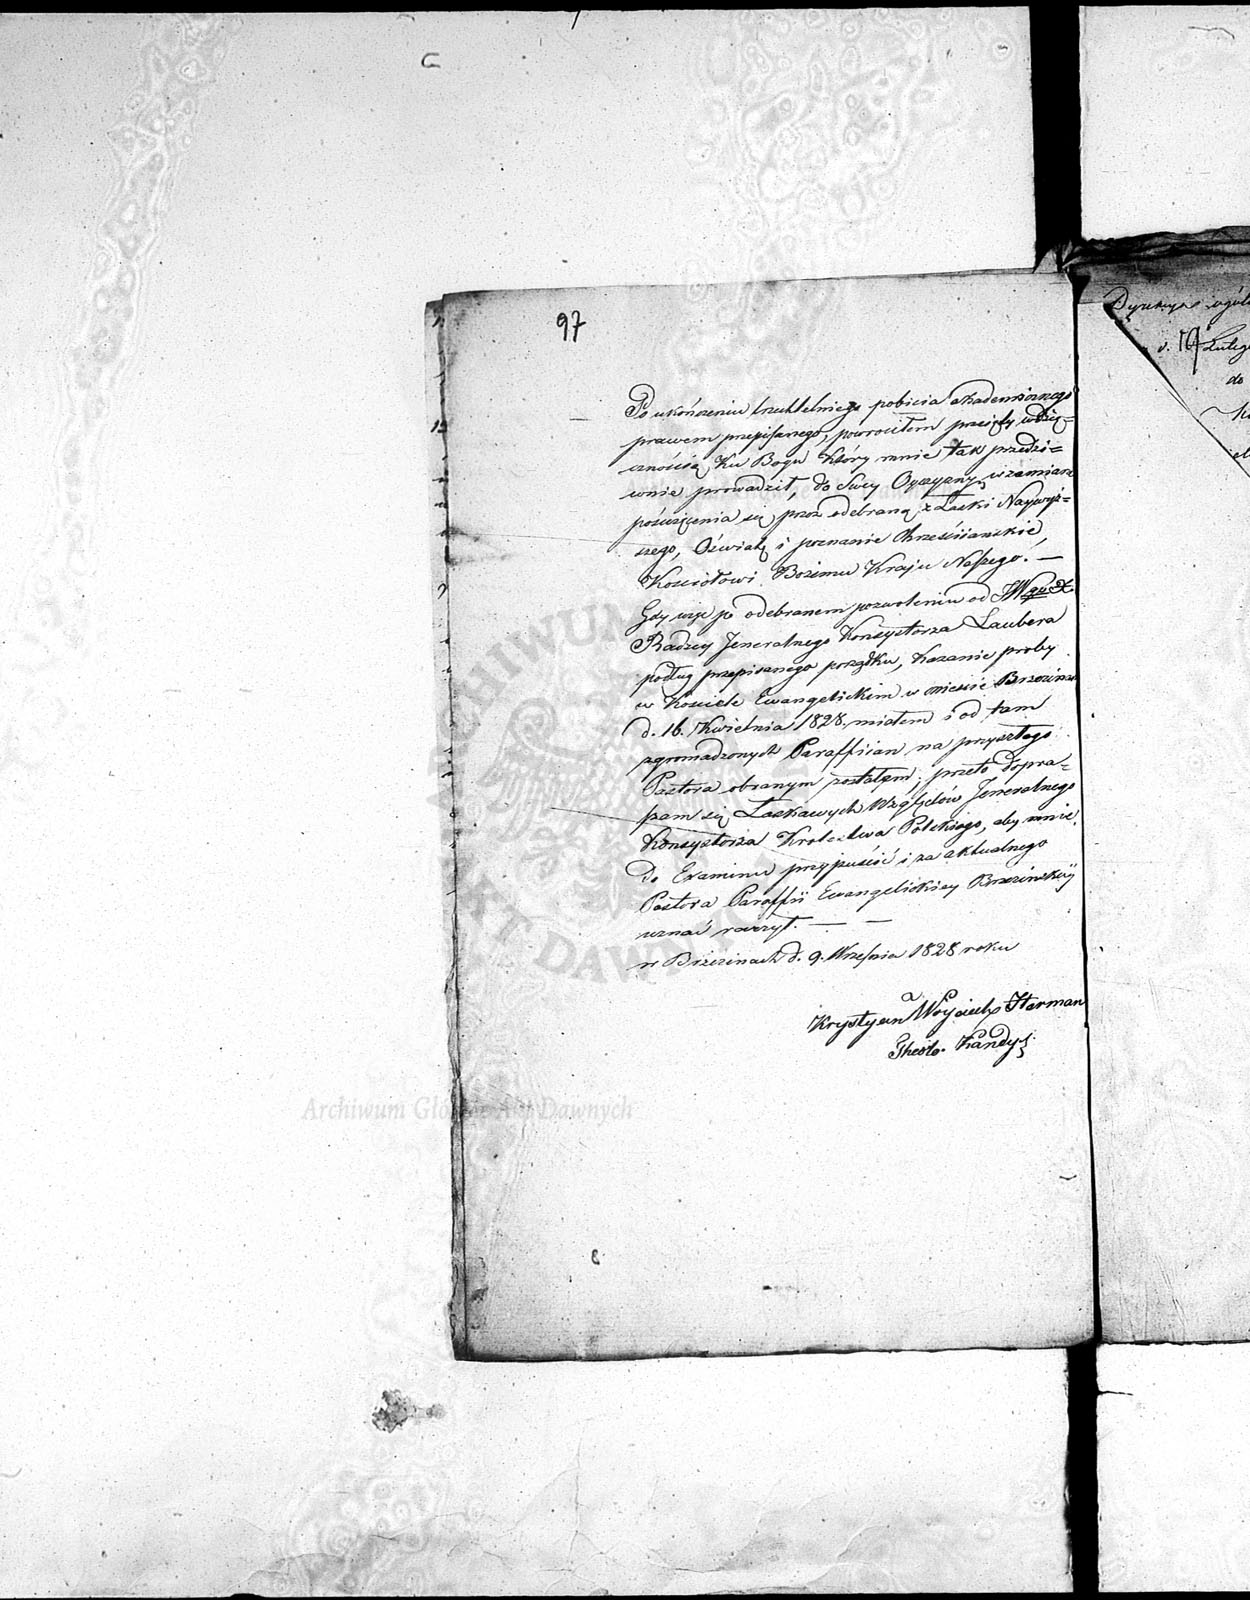 97
Po ukończeniu trzechletniego pobicia akademicznego
prawem przepisanego, powrociłem przejęty wdzię-
cznością Ku Bogu Który mnie tak przedzi-
wnie prowadził, do Swey Oyczyzny, w zamiarze
poświęcenia się przez odebraną z Łaski Naywyż-
szego, Oświatę i poznanie Chrześciianskie,
Kościołowi Bożemu Kraju Naszego. —
Gdy więc po odebranem pozwoleniu od JW
Radzcy Jeneralnego Konsystorza Laubera
podług przepisanego porządku, Kazanie proby
w Kościele Ewangelickim w miescie Brzezinach
d. 16. Kwietnia 1828. miałem i od tam
zgromadzonych Paraffiian na przyszłego
Pastora obranym zostałem; przeto dopra-
szam się Łaskawych Względów Jeneralnego
Konsystorza Krolestwa Polskiego, aby mnie
do Examinu przypuścić i za aktualnego
Pastora Paraffii Ewangelickiey Brzezinskiey
uznać raczył. — —
w Brzezinach d. 9. Września 1828 roku
Krystyan Woyciech Harman
Theolo. Kandy
Dyrekcya ogóln
d. 16 Luteg
do
Archiwum Główne Akt Dawnych
ARCHIWUM
AKT DAWNYCH